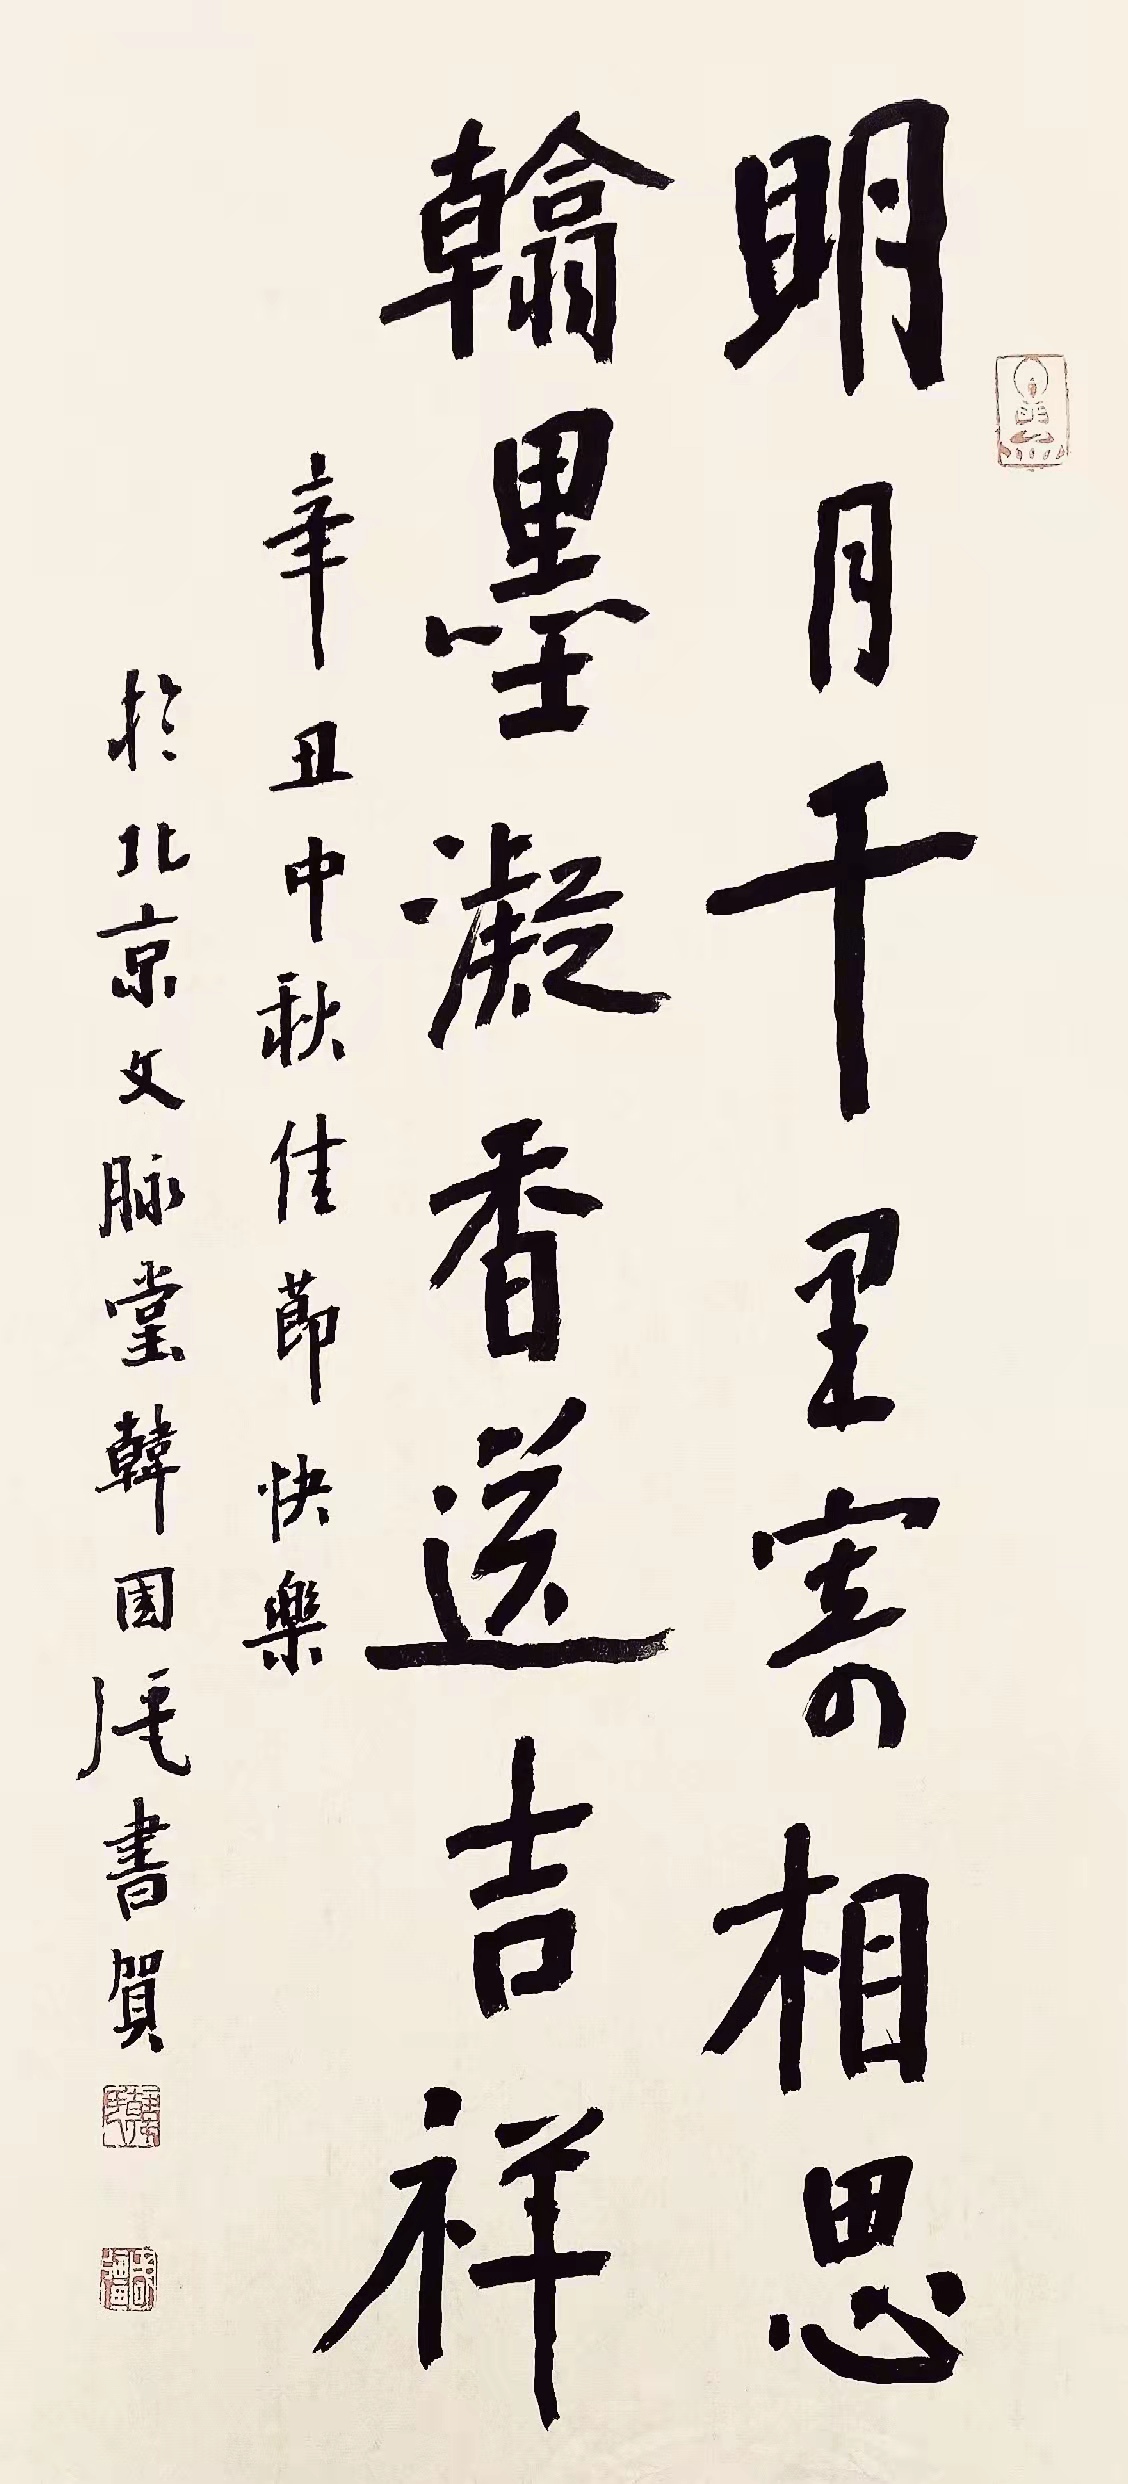 明月千里寄相思
翰墨凝香送吉祥
辛丑中秋佳節快樂
於北京文脉堂韓國書賀